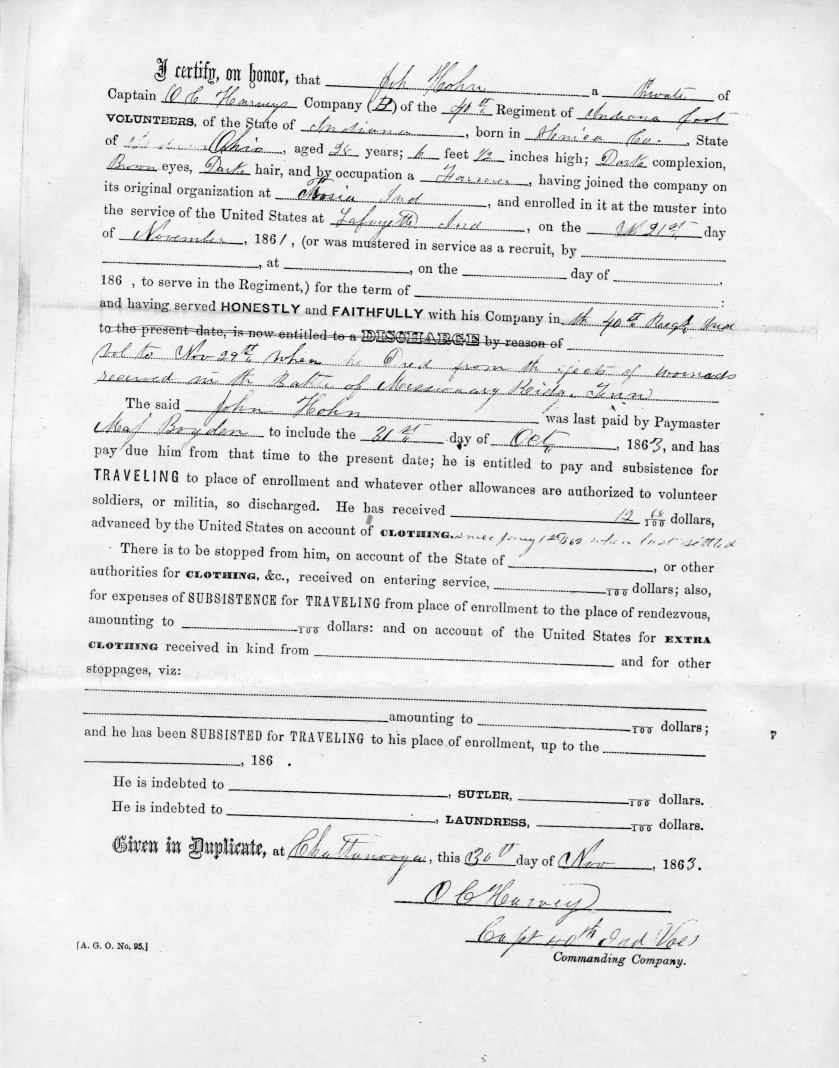 I certify, on honor, that Joh Hohn a Private of
Captain O C Harveys Company (D) of the 40th Regiment of Indiana foot
VOLUNTEERS, of the State of Indiana, born in Seneca Co., State
of Ohio, aged 28 years; 6 feet 1/2 inches high; Dark complexion,
Brown eyes, Dark hair, and by occupation a Farmer, having joined the company on
its original organization at Ind, and enrolled in it at the muster into
the service of the United States at Lafayette Ind, on the 21st day
of November, 1861, (or was mustered in service as a recruit, by
, at , on the day of ,
186 , to serve in the Regiment,) for the term of :
and having served HONESTLY and FAITHFULLY with his Company in th 40th Regt Ind
to the present date, is now entitled to a DISCHARGE by reason of
Vol to Nov 29th when he Died from th efects of wounds
received in th Battle of Missionary Ridge, Tenn
The said John Hohn was last paid by Paymaster
Maj Boyden to include the 31st day of Oct, 1863, and has
pay due him from that time to the present date; he is entitled to pay and subsistence for
TRAVELING to place of enrollment and whatever other allowances are authorized to volunteer
soldiers, or militia, so discharged. He has received 12 68/100 dollars,
advanced by the United States on account of CLOTHING. since 1st when last settled
There is to be stopped from him, on account of the State of , or other
authorities for CLOTHING, &c., received on entering service, 100 dollars; also,
for expenses of SUBSISTENCE for TRAVELING from place of enrollment to the place of rendezvous,
amounting to 100 dollars: and on account of the United States for EXTRA
CLOTHING received in kind from and for other
stoppages, viz:
amounting to 100 dollars;
and he has been SUBSISTED for TRAVELING to his place of enrollment, up to the
, 186 .
He is indebted to , SUTLER, 100 dollars.
He is indebted to , LAUNDRESS, 100 dollars.
Given in Duplicate, at Chattanooga, this 30th day of Nov, 1863.
O C Harvey
Capt 40th Ind Vols
[A. G. O. No. 95.]
Commanding Company.